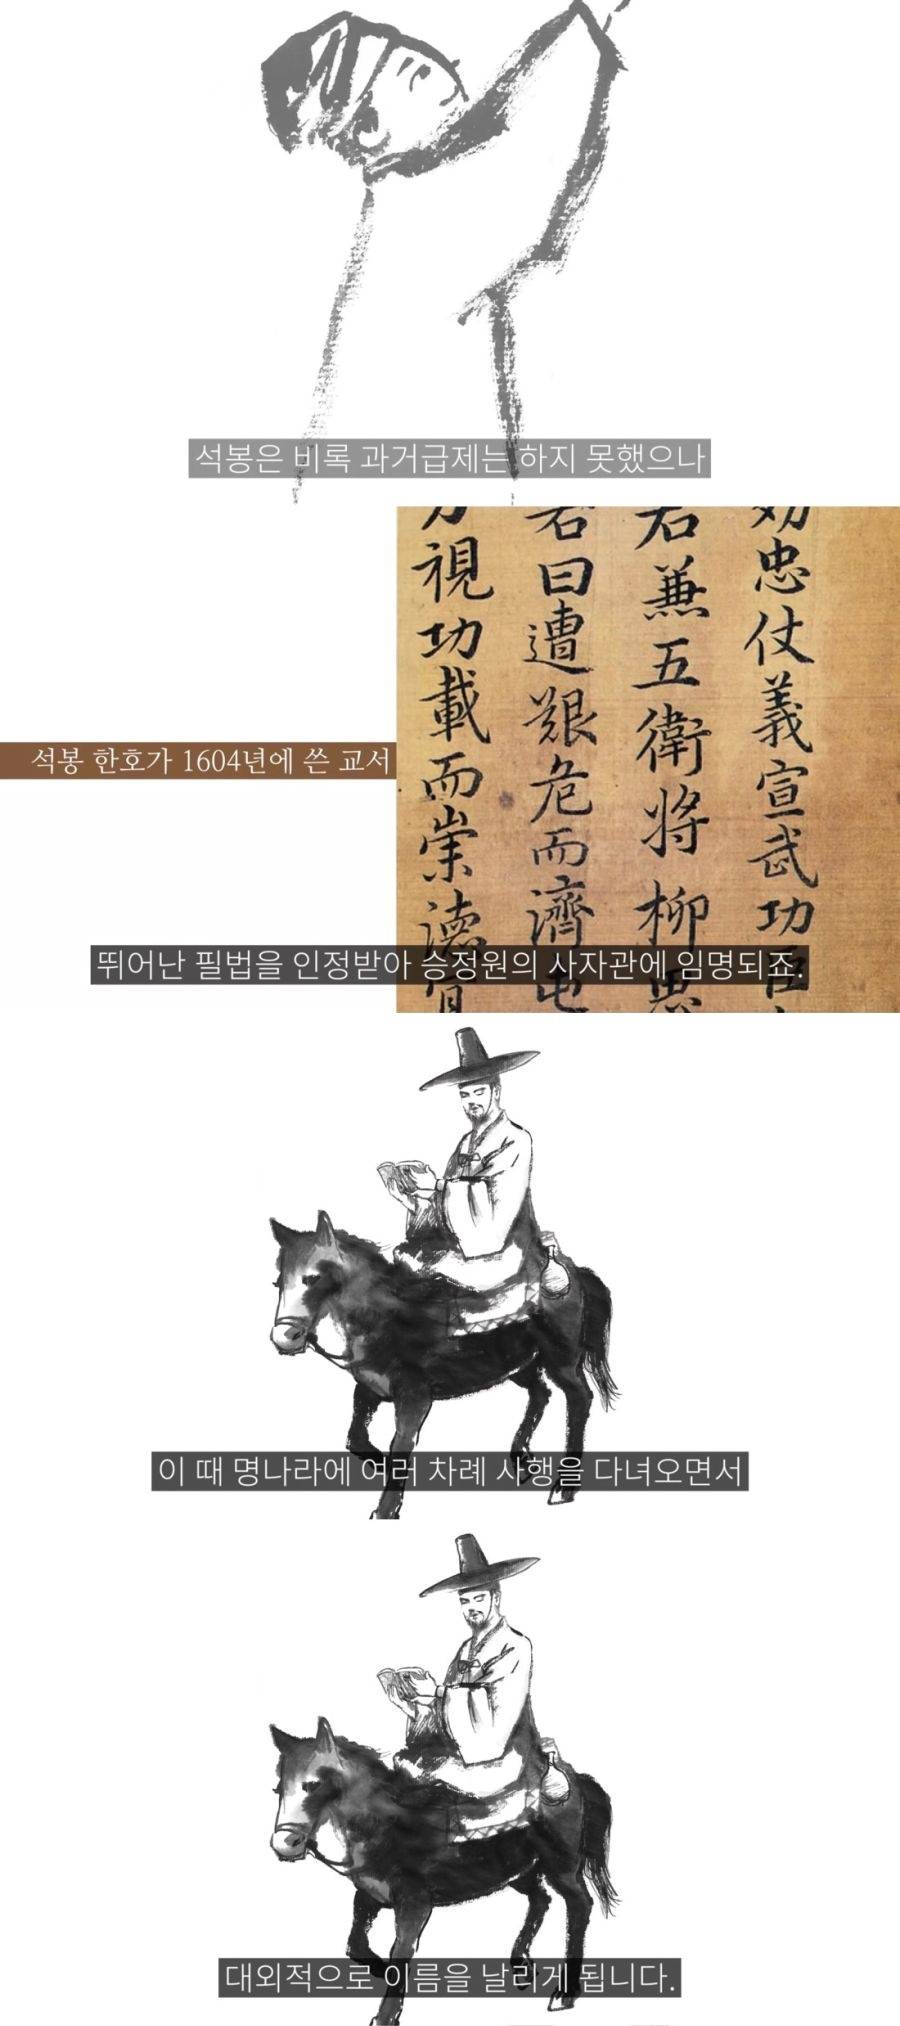 석봉은 비록 과거급제는 하지 못했으나
勸忠仗義宣武功臣
君兼五衛將柳思
若曰遭艱危而濟屯
視功載而崇德
석봉 한호가 1604년에 쓴 교서
뛰어난 필법을 인정받아 승정원의 사자관에 임명되죠.
이 때 명나라에 여러 차례 사행을 다녀오면서
대외적으로 이름을 날리게 됩니다.